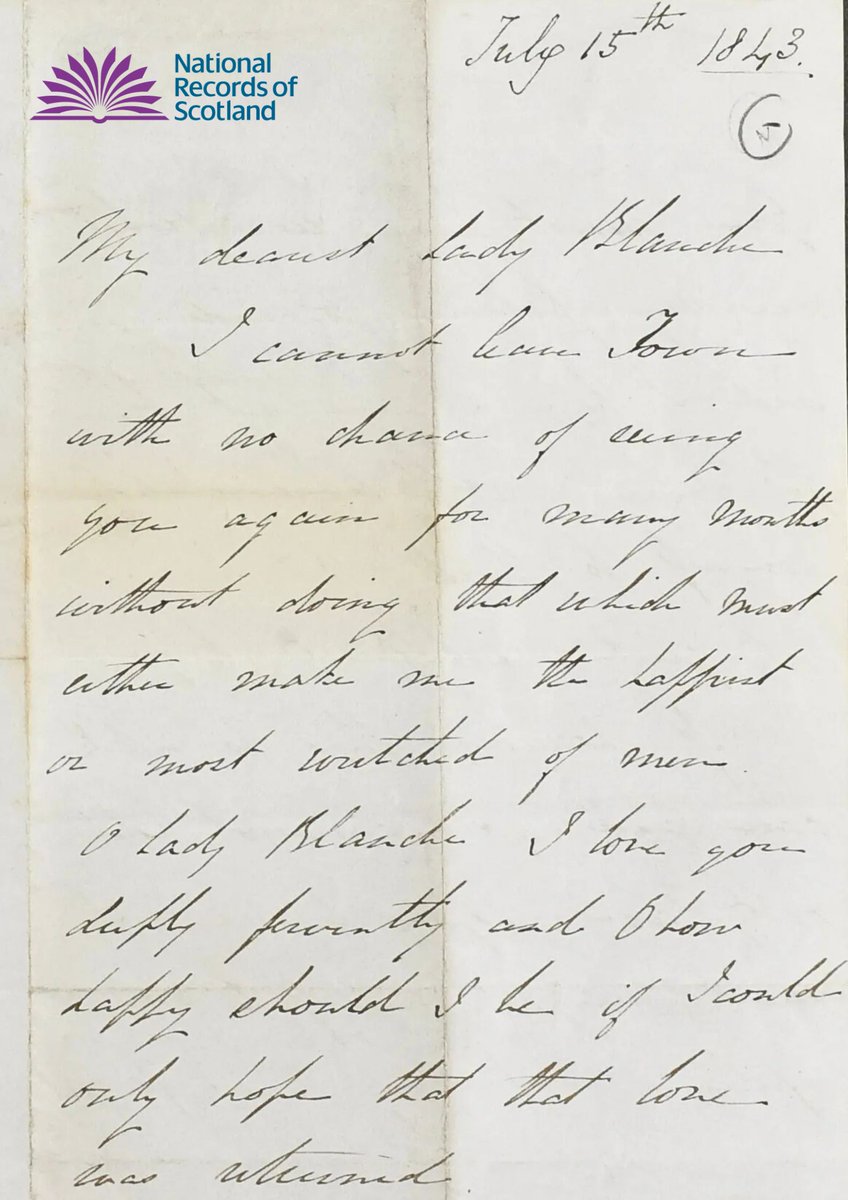 National
Records of
Scotland
July 15th 1843.
My dearest Lady Blanche
I cannot leave Town
with no chance of seeing
you again for many months
without doing that which must
either make me the happiest
or most wretched of men
O Lady Blanche I love you
deeply fervently and O how
happy should I be if I could
only hope that that love
was returned